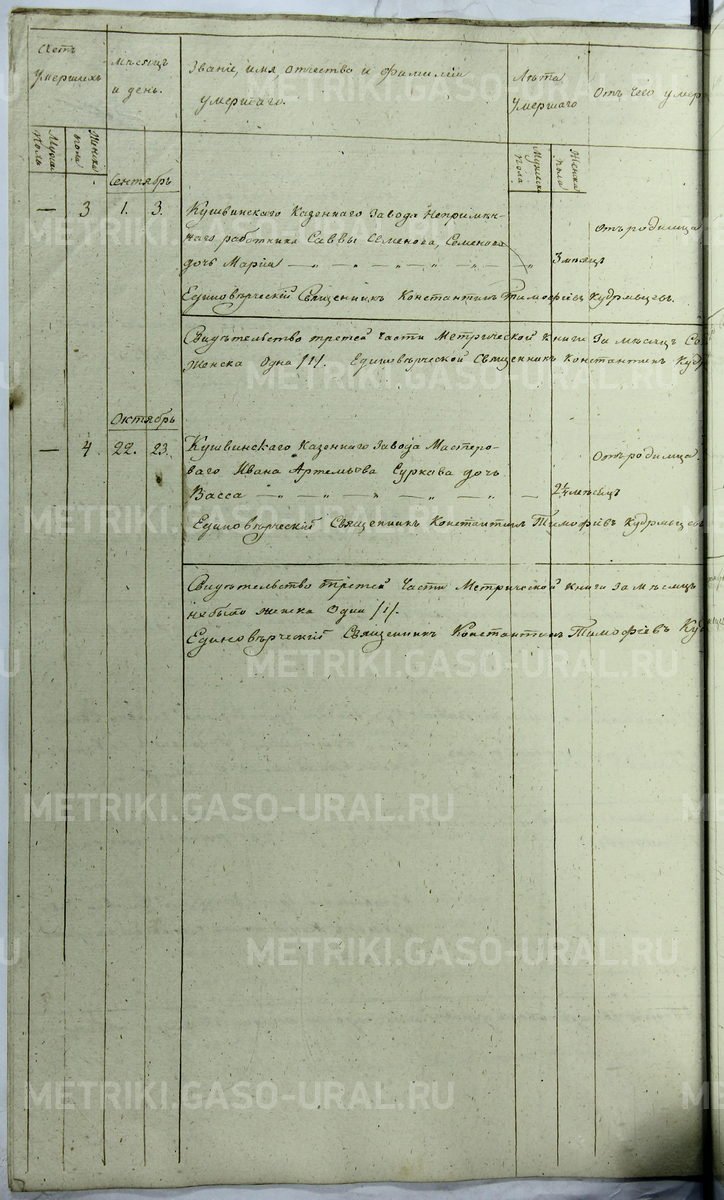 Счетъ умершихъ
мѣсяцъ и день.
Званіе, имя, отчество и фамиліи
умершаго.
Лѣта умершаго
Отъ чего умер
Мужска полъ
Женска пола
Мужска пола
Женска пола
Сентябрь
— 3 1. 3. Кушвинскаго Казеннаго Завода Непримѣн-
наго работника Саввы Семенова, Семенова
дочь Марія — „ — „ — „ — „ — „ 3 мѣсяцъ отъ родимца
Единовѣрческій Священникъ Константинъ Тимофѣевъ Кудрявцевъ.
Свидѣтельство третей Части Метрической Книги За мѣсяцъ Се
Женска Одна /1/. Единовѣрческой Священникъ Константинъ Кудр
Октябрь
— 4. 22. 23. Кушвинскаго Казеннаго Завода Мастеро-
ваго Ивана Артемьева Суркова дочь
Васса — „ — „ — „ — „ — „ — 2½ мѣсяцъ Отъ родимца.
Единовѣрческій Священникъ Константинъ Тимофѣевъ Кудрявцевъ
Свидѣтельство третей Части Метрической Книги За мѣсяцъ
небыло женска Один /1/.
Единовѣрческій Священникъ Константинъ Тимофѣевъ Куд
METRIKI.GASO-URAL.RU